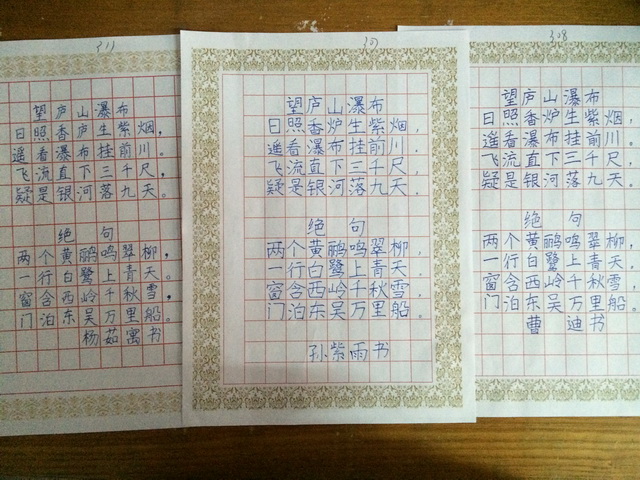 311
望庐山瀑布
日照香庐生紫烟，
遥看瀑布挂前川。
飞流直下三千尺，
疑是银河落九天。
绝句
两个黄鹂鸣翠柳，
一行白鹭上青天。
窗含西岭千秋雪，
门泊东吴万里船。
杨茹寓书
307
望庐山瀑布
日照香炉生紫烟，
遥看瀑布挂前川。
飞流直下三千尺，
疑是银河落九天．
绝句
两个黄鹂鸣翠柳，
一行白鹭上青天．
窗含西岭千秋雪，
门泊东吴万里船。
孙紫雨书
308
望庐山瀑布
日照香炉生紫烟，
遥看瀑布挂前川。
飞流直下三千尺，
疑是银河落九天。
绝句
两个黄鹂鸣翠柳，
一行白鹭上青天。
窗含西岭千秋雪，
门泊东吴万里船。
曹迪书